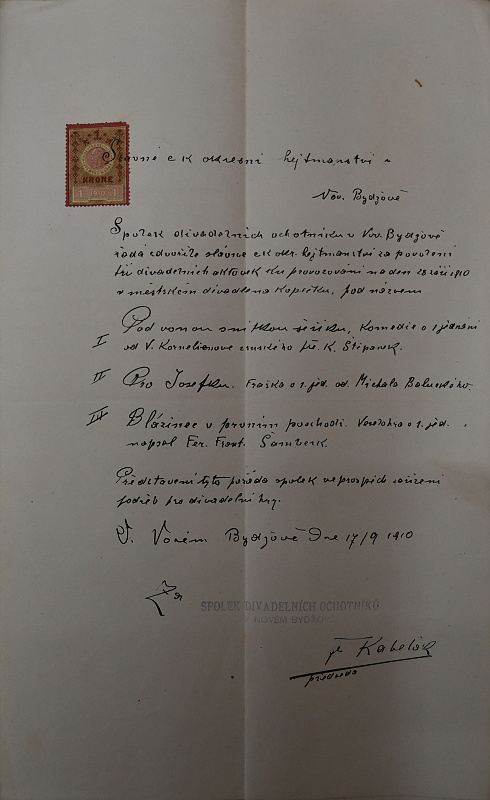 1
KRONE
1 1910 1
Slavné c k okresní hejtmanství v
Nov. Bydžově
Spolek divadelních ochotníků v Nov. Bydžově
žádá zdvořile slavné c k okr. hejtmanství za povolení
tří divadelních aktovek ku provozování na den 28 září 1910
v městském divadle na Kopečku, pod názvem
I Pod vonnou snítkou šeříku, Komedie o 1 jednání
od V. př. K. Štěpánek.
II Pro Josefku. Fraška o 1 jed. od Michala Baluckého.
III Blázinec v prvním poschodí. Veselohra o 1. jed.
napsal Fer. Frant. Šamberk.
Představení tyto pořádá spolek ve prospěch zařízení
potřeb pro divadelní hry.
V. Novém Bydžově Dne 17/9 1910
SPOLEK DIVADELNÍCH OCHOTNÍKŮ
NOVÉM BYDŽOVĚ
Kabelák
předseda